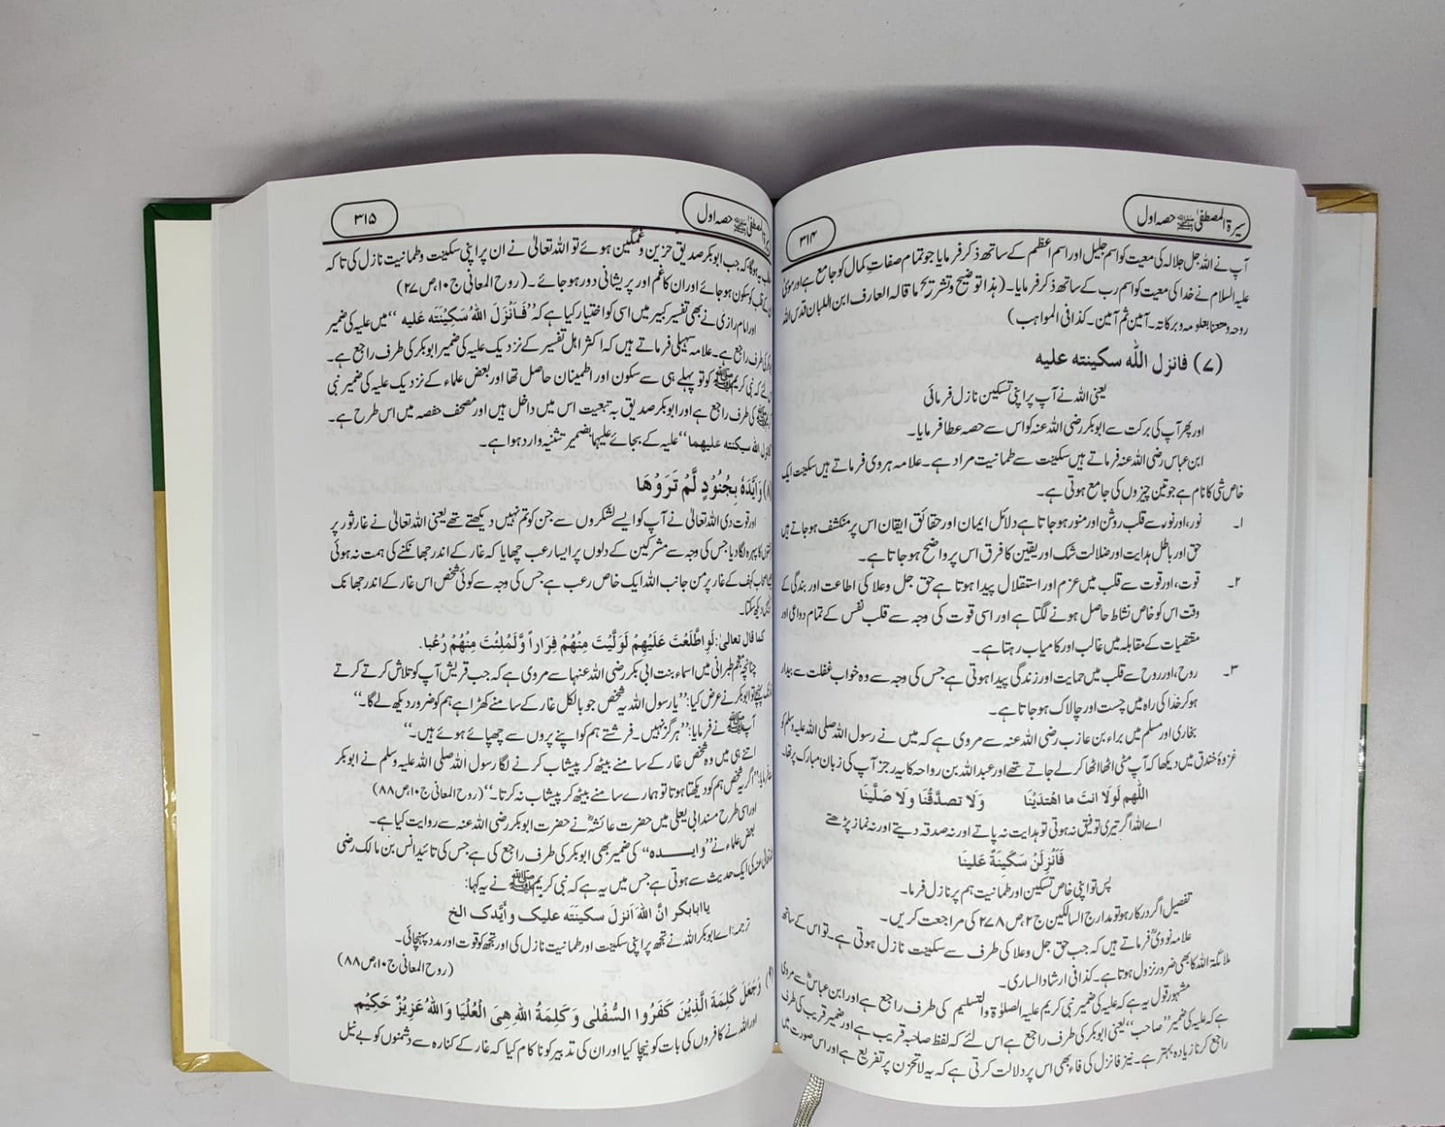 سیرۃ المصطفیٰ ﷺ حصہ اول
۳۱۴
آپ نے اللہ جل جلالہ کی معیت کو اسم جلیل اور اسم اعظم کے ساتھ ذکر فرمایا جو تمام صفاتِ کمال کو جامع ہے اور موسیٰ
علیہ السلام نے خدا کی معیت کو اسم رب کے ساتھ ذکر فرمایا۔ (ہذا توضیح وتشریح ما قالہ العارف ابن اللبان قدس اللہ
روحہ ونفعنا بعلومہ وبرکاتہ۔ آمین ثم آمین۔ کذا فی المواہب)
(۷) فانزل اللہ سکینتہ علیہ
یعنی اللہ نے آپ پر اپنی تسکین نازل فرمائی
اور پھر آپ کی برکت سے ابوبکر رضی اللہ عنہ کو اس سے حصہ عطا فرمایا۔
ابن عباس رضی اللہ عنہ فرماتے ہیں سکینت سے طمانیت مراد ہے۔ علامہ ہروی فرماتے ہیں سکینت ایک
خاص شی کا نام ہے جو تین چیزوں کی جامع ہوتی ہے۔
۱۔ نور، اور نور سے قلب روشن اور منور ہوجاتا ہے دلائل ایمان اور حقائق ایقان اس پر منکشف ہوجاتے ہیں
حق اور باطل ہدایت اور ضلالت شک اور یقین کا فرق اس پر واضح ہوجاتا ہے۔
۲۔ قوت، اور قوت سے قلب میں عزم اور استقلال پیدا ہوتا ہے حق جل وعلا کی اطاعت اور بندگی کے
وقت اس کو خاص نشاط حاصل ہونے لگتا ہے اور اسی قوت کی وجہ سے قلب نفس کے تمام دواعی اور
مقتضیات کے مقابلہ میں غالب اور کامیاب رہتا ہے۔
۳۔ روح، اور روح سے قلب میں حمایت اور زندگی پیدا ہوتی ہے جس کی وجہ سے وہ خواب غفلت سے بیدار
ہوکر خدا کی راہ میں چست اور چالاک ہوجاتا ہے۔
بخاری اور مسلم میں براء بن عازب رضی اللہ عنہ سے مروی ہے کہ میں نے رسول اللہ صلی اللہ علیہ وسلم کو
غزوۂ خندق میں دیکھا کہ آپ مٹی اٹھا اٹھا کر لے جاتے تھے اور عبداللہ بن رواحہ کا یہ رجز آپ کی زبان مبارک پر تھا۔
اللهم لَولَا انتَ ما اهْتَدَيْنَا وَلَا تَصدَّقْنَا وَلَا صَلَّيْنَا
اے اللہ اگر تیری توفیق نہ ہوتی تو ہدایت نہ پاتے اور نہ صدقہ دیتے اور نہ نماز پڑھتے
فَاَنْزِلَنْ سَكِيْنَةً عَلَينَا
پس تو اپنی خاص تسکین اور طمانیت ہم پر نازل فرما۔
تفصیل اگر درکار ہو تو مدارج السالکین ج۲، ص ۲۷۸ کی مراجعت کریں۔
علامہ نوویؒ فرماتے ہیں کہ جب حق جل وعلا کی طرف سے سکینت نازل ہوتی ہے۔ تو اس کے ساتھ
ملائکۃ اللہ کا بھی ضرور نزول ہوتا ہے۔ کذا فی ارشاد الساری۔
مشہور قول یہ ہے کہ علیہ کی ضمیر نبی کریم علیہ الصلوٰۃ والتسلیم کی طرف راجع ہے اور ابن عباسؓ سے مروی
ہے کہ علیہ کی ضمیر ”صاحب“ یعنی ابوبکر کی طرف راجع ہے اس لئے کہ لفظ صاحبہ قریب ہے اور ضمیر قریب کی طرف
راجع کرنا زیادہ بہتر ہے۔ نیز فانزل کی فاء بھی اس پر دلالت کرتی ہے کہ یہ لاتحزن پر تفریع ہے اور اس صورت میں
حصہ اول
۳۱۵
کہ جب ابوبکر صدیق حزین وغمگین ہوئے تو اللہ تعالیٰ نے ان پر اپنی سکینت وطمانیت نازل کی تاکہ
کو سکون ہوجائے اور ان کا غم اور پریشانی دور ہوجائے۔ (روح المعانی ج۱۰، ص ۲۷)
اور امام رازی نے بھی تفسیر کبیر میں اسی کو اختیار کیا ہے کہ ”فَاَنْزَلَ اللهُ سَكِيْنَتَه عليه“ میں علیہ کی ضمیر
کی طرف راجع ہے۔ علامہ سہیلی فرماتے ہیں کہ اکثر اہل تفسیر کے نزدیک علیہ کی ضمیر ابوبکر کی طرف راجع ہے۔
کہ نبی کریم ﷺ کو تو پہلے ہی سے سکون اور اطمینان حاصل تھا اور بعض علماء کے نزدیک علیہ کی ضمیر نبی
ﷺ کی طرف راجع ہے اور ابوبکر صدیق بہ تبعیت اس میں داخل ہیں اور مصحف حفصہ میں اس طرح ہے۔
الله سكينته عليهما“ علیہ کے بجائے علیہما بضمیر تثنیہ وارد ہوا ہے۔
(۸) وَاَيَّدَهٗ بِجُنُوْدٍ لَّمْ تَرَوْهَا
اور قوت دی اللہ تعالیٰ نے آپ کو ایسے لشکروں سے جن کو تم نہیں دیکھتے تھے یعنی اللہ تعالیٰ نے غار ثور پر
کا پہرہ لگا دیا جس کی وجہ سے مشرکین کے دلوں پر ایسا رعب چھایا کہ غار کے اندر جھانکنے کی ہمت نہ ہوئی
کہف کے غار پر من جانب اللہ ایک خاص رعب ہے جس کی وجہ سے کوئی شخص اس غار کے اندر جھانک
دیکھ سکتا۔
كما قال تعالىٰ: لَوِ اطَّلَعْتَ عَلَيْهِمْ لَوَلَّيْتَ مِنْهُمْ فِرَاراً وَّلَمُلِئْتَ مِنْهُمْ رُعْبا.
چنانچہ معجم طبرانی میں اسماء بنت ابی بکر رضی اللہ عنہا سے مروی ہے کہ جب قریش آپ کو تلاش کرتے کرتے
پہنچے تو ابوبکر نے عرض کیا: ”یا رسول اللہ یہ شخص جو بالکل غار کے سامنے کھڑا ہے ہم کو ضرور دیکھ لے گا۔“
آپ ﷺ نے فرمایا: ”ہرگز نہیں۔ فرشتے ہم کو اپنے پروں سے چھپائے ہوئے ہیں۔“
اتنے ہی میں وہ شخص غار کے سامنے بیٹھ کر پیشاب کرنے لگا رسول اللہ صلی اللہ علیہ وسلم نے ابوبکر
”اگر یہ شخص ہم کو دیکھتا ہوتا تو ہمارے سامنے بیٹھ کر پیشاب نہ کرتا۔“ (روح المعانی ج۱۰، ص ۸۸)
اور اسی طرح مسند ابی یعلی میں حضرت عائشہؓ نے حضرت ابوبکر رضی اللہ عنہ سے روایت کیا ہے۔
بعض علماء نے ”وایدہ“ کی ضمیر بھی ابوبکر کی طرف راجع کی ہے جس کی تائید انس بن مالک رضی
کی ایک حدیث سے ہوتی ہے جس میں یہ ہے کہ نبی کریم ﷺ نے یہ کہا:
يا ابابكر انَّ اللهَ اَنزلَ سكينَتَه عليك وأيَّدك الخ
ترجمہ: اے ابوبکر اللہ نے تجھ پر اپنی سکینت اور طمانیت نازل کی اور تجھ کو قوت اور مدد پہنچائی۔
(روح المعانی ج۱۰، ص ۸۸)
وَجَعَلَ كَلِمَةَ الَّذِيْنَ كَفَرُوا السُّفْلٰى وَكَلِمَةُ اللهِ هِيَ الْعُلْيَا وَاللهُ عَزِيْزٌ حَكِيْم
اور اللہ نے کافروں کی بات کو نیچا کیا اور ان کی تدبیر کو ناکام کیا کہ غار کے کنارہ سے دشمنوں کو بے نیل